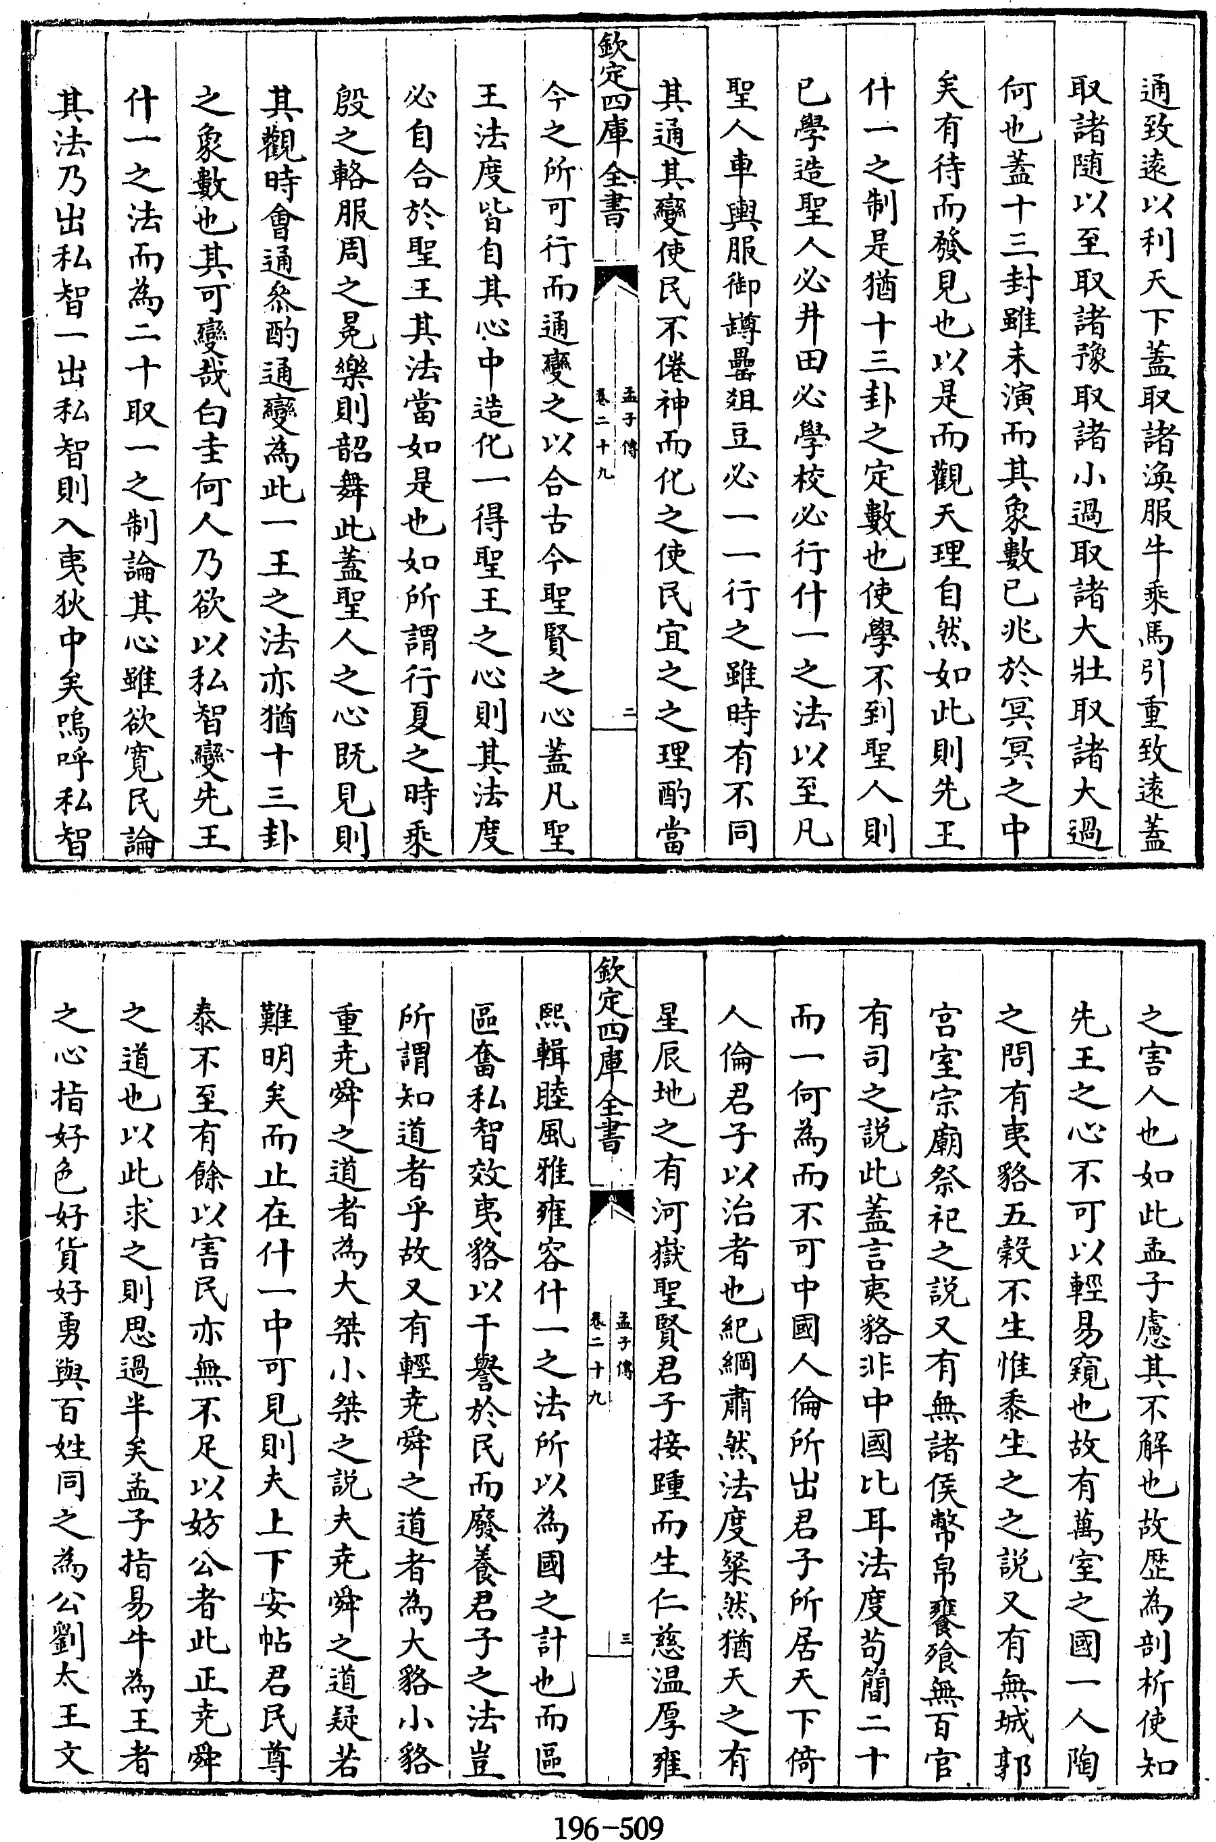 通致遠以利天下蓋取諸渙服牛乘馬引重致遠蓋
取諸隨以至取諸豫取諸小過取諸大壯取諸大過
何也蓋十三封雖未演而其象數已兆於冥冥之中
矣有待而發見也以是而觀天理自然如此則先王
什一之制是猶十三卦之定數也使學不到聖人則
已學造聖人必井田必學校必行什一之法以至凡
聖人車輿服御罇罍俎豆必一一行之雖時有不同
其通其變使民不倦神而化之使民宜之之理酌當
欽定四庫全書
孟子傳
卷二十九
二
今之所可行而通變之以合古今聖賢之心蓋凡聖
王法度皆自其心中造化一得聖王之心則其法度
必自合於聖王其法當如是也如所謂行夏之時乘
殷之輅服周之冕樂則韶舞此蓋聖人之心既見則
其觀時會通叅酌通變為此一王之法亦猶十三卦
之象數也其可變哉白圭何人乃欲以私智變先王
什一之法而為二十取一之制論其心雖欲寬民論
其法乃出私智一出私智則入夷狄中矣嗚呼私智
之害人也如此孟子慮其不解也故歷為剖析使知
先王之心不可以輕易窺也故有萬室之國一人陶
之問有夷貉五穀不生惟黍生之之說又有無城郭
宮室宗廟祭祀之說又有無諸侯幣帛饔飱無百官
有司之說此蓋言夷貉非中國比耳法度苟簡二十
而一何為而不可中國人倫所出君子所居天下倚
人倫君子以治者也紀綱肅然法度粲然猶天之有
星辰地之有河嶽聖賢君子接踵而生仁慈温厚雍
欽定四庫全書
孟子傳
卷二十九
三
熙輯睦風雅雍容什一之法所以為國之計也而區
區奮私智效夷貉以干譽於民而廢養君子之法豈
所謂知道者乎故又有輕堯舜之道者為大貉小貉
重堯舜之道者為大桀小桀之說夫堯舜之道疑若
難明矣而止在什一中可見則夫上下安帖君民尊
泰不至有餘以害民亦無不足以妨公者此正堯舜
之道也以此求之則思過半矣孟子指易牛為王者
之心指好色好貨好勇與百姓同之為公劉太王文
196-509